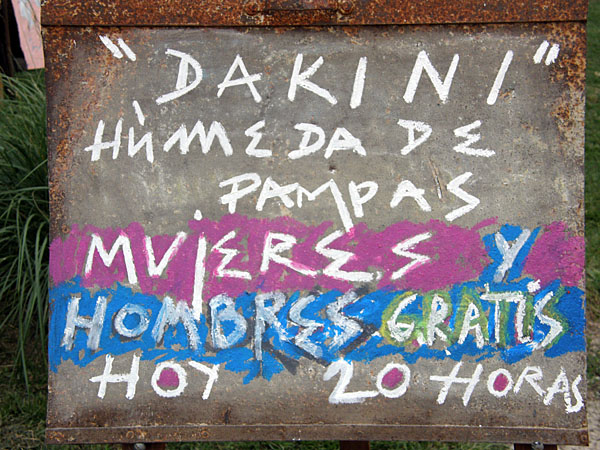 "DAKINI"
HÚMEDA DE
PAMPAS
MUJERES Y
HOMBRES GRATIS
HOY 20 HORAS